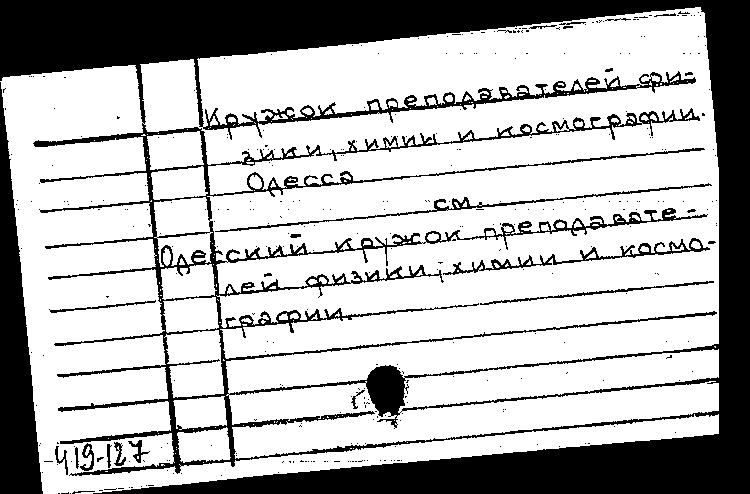 Кружок преподавателей фи-
зики, химии и космографии.
Одесса
см.
Одесский кружок преподавате-
лей физики, химии и космо-
графии.
419-127